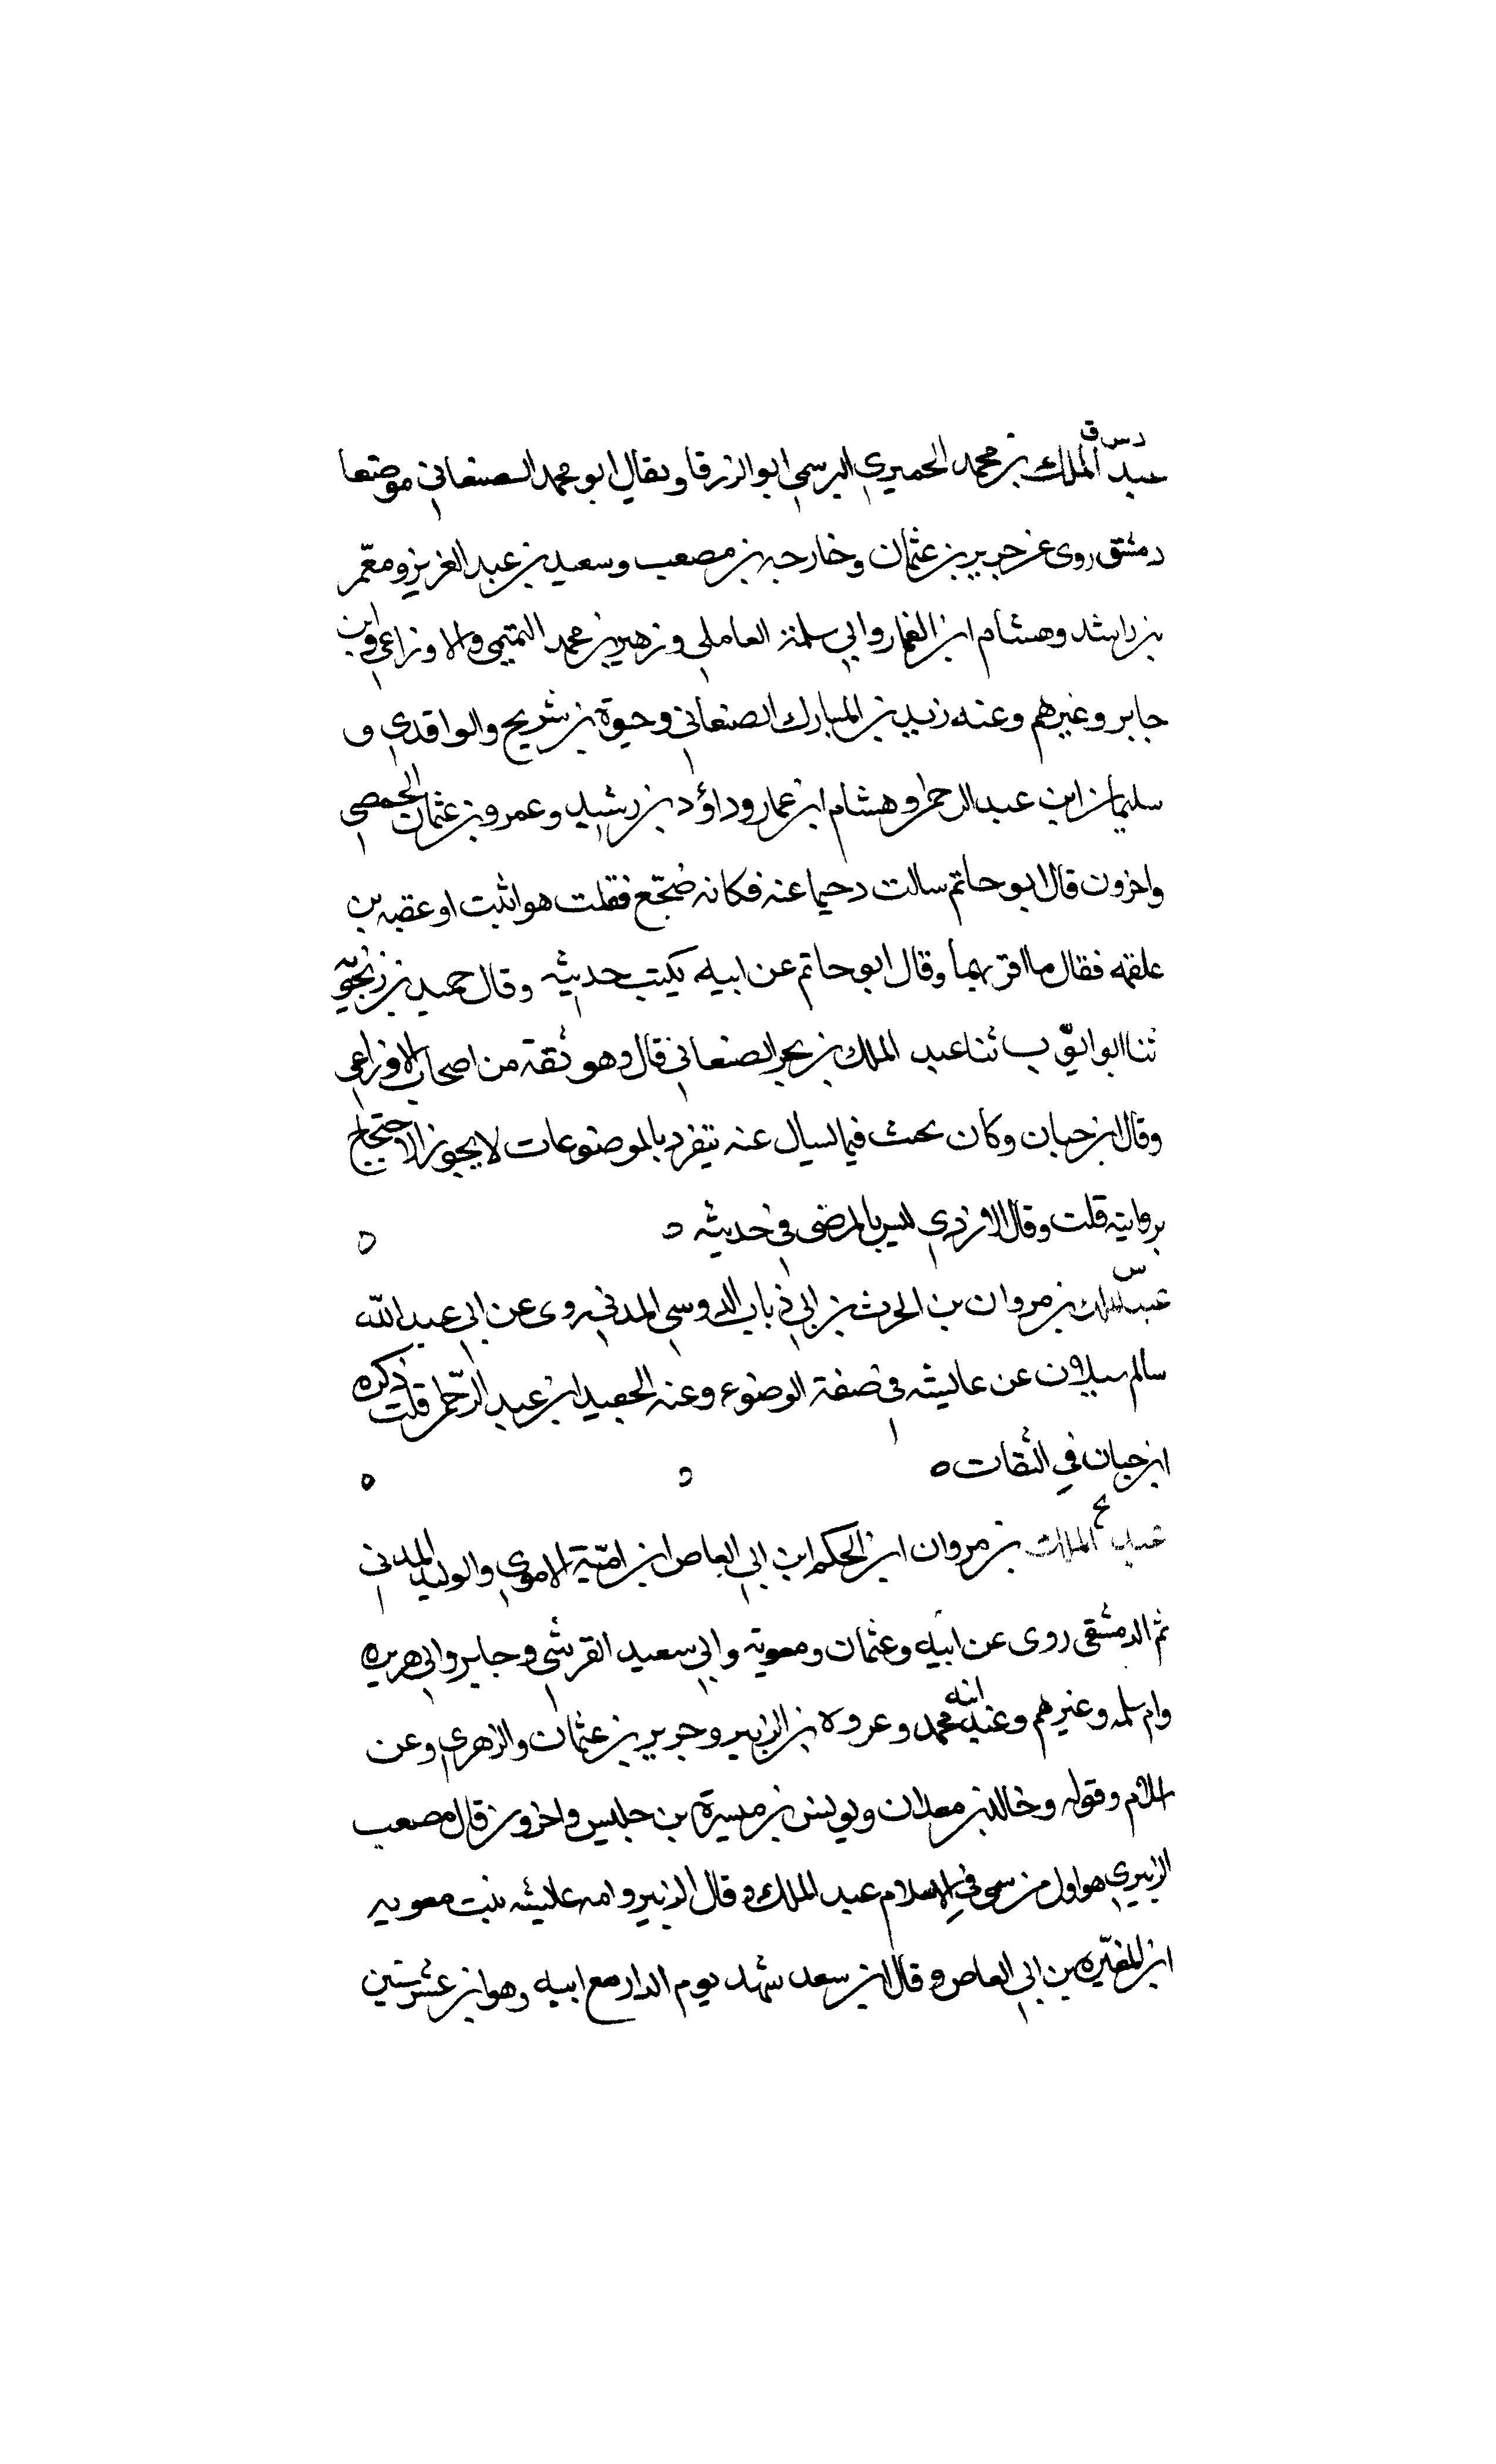 د س ق
عبد الملك بن محمد الحميري البرسمي ابو الزرقا ويقال ابو محمد الصنعاني من صنعا
دمشق روى عن حرير بن عثمان وخارجه بن مصعب وسعيد بن عبد العزيز ومعمّر
بن راشد وهشام ابن الغار وابي سلمة العاملي وزهير بن محمد التميمي والاوزاعي وابن
جابر وغيرهم وعنه زيد بن المبارك الصنعاني وحيوة بن شريح والواقدي و
سليمان ابن عبد الرحمن وهشام ابن عمار وداؤد بن رشيد وعمرو بن عثمان الحمصي
واخرون قال ابو حاتم سالت دحيما عنه فكانه ضجّع فقلت هو اثبت او عقبه بن
علقمه فقال ما اقربهما وقال ابو حاتم عن ابيه يكتب حديثه وقال حميد بن زنجويه
ثنا ابو ايوّب ثنا عبد الملك بن محمد الصنعاني قال وهو ثقة من اصحاب الاوزاعي
وقال ابن حبان وكان يجيب فيما يسال عنه يتفرد بالموضوعات لا يجوز الاحتجاج
بروايته قلت وقال الازدي ليس بالمرضي في حديثه ه ه
س
عبد الملك بن مروان بن الحرث بن ابي ذباب الدوسي المدني روى عن ابي عبد الله
سالم سبلان عن عايشه في صفة الوضوء وعنه الجعيد ابن عبد الرحمن قلت ذكره
ابن حبان في الثقات ه ه ه
بخ
عبد الملك بن مروان ابن الحكم ابن ابي العاص ابن اميّة الاموي والوليد المدني
ثم الدمشقي روى عن ابيه وعثمان ومعوية وابي سعيد القرشي وجابر وابي هريره
وام سلمه وغيرهم وعنه ابنه محمد وعروه بن الزبير وحرير بن عثمان والزهري وعن
وقوله وخالد بن معدان ويونس بن ميسرة بن حلبس واخرون قال مصعب
الزبيري هو اول من سمي في الاسلام عبد الملك وقال الزبير وامه عايشه بنت معويه
ابن المغيّره بن ابي العاص وقال ابن سعد شهد يوم الدار مع ابيه وهو ابن عشر سنين